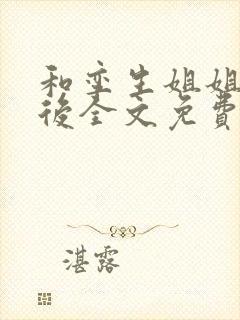 和孪生姐姐
後全文免費
湛露